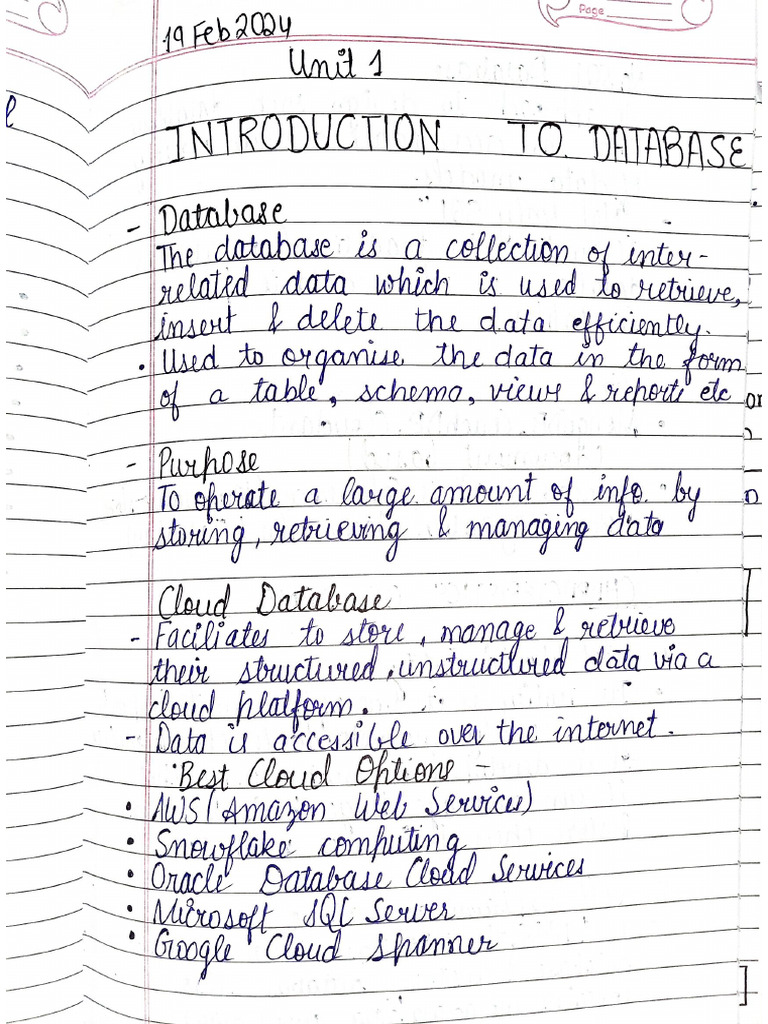 Page
19 Feb 2024
Unit 1
INTRODUCTION TO DATABASE
- Database
The database is a collection of inter-
related data which is used to retrieve,
insert & delete the data efficiently.
• Used to organise the data in the form
of a table, schema, views & reports etc
- Purpose
To operate a large amount of info. by
storing, retrieving & managing data
Cloud Database
- Faciliates to store, manage & retrieve
their structured, unstructured data via a
cloud platform.
- Data is accessible over the internet.
Best Cloud Options -
• AWS (Amazon Web Services)
• Snowflake computing
• Oracle Database Cloud Services
• Microsoft SQL Server
• Google Cloud Spanner